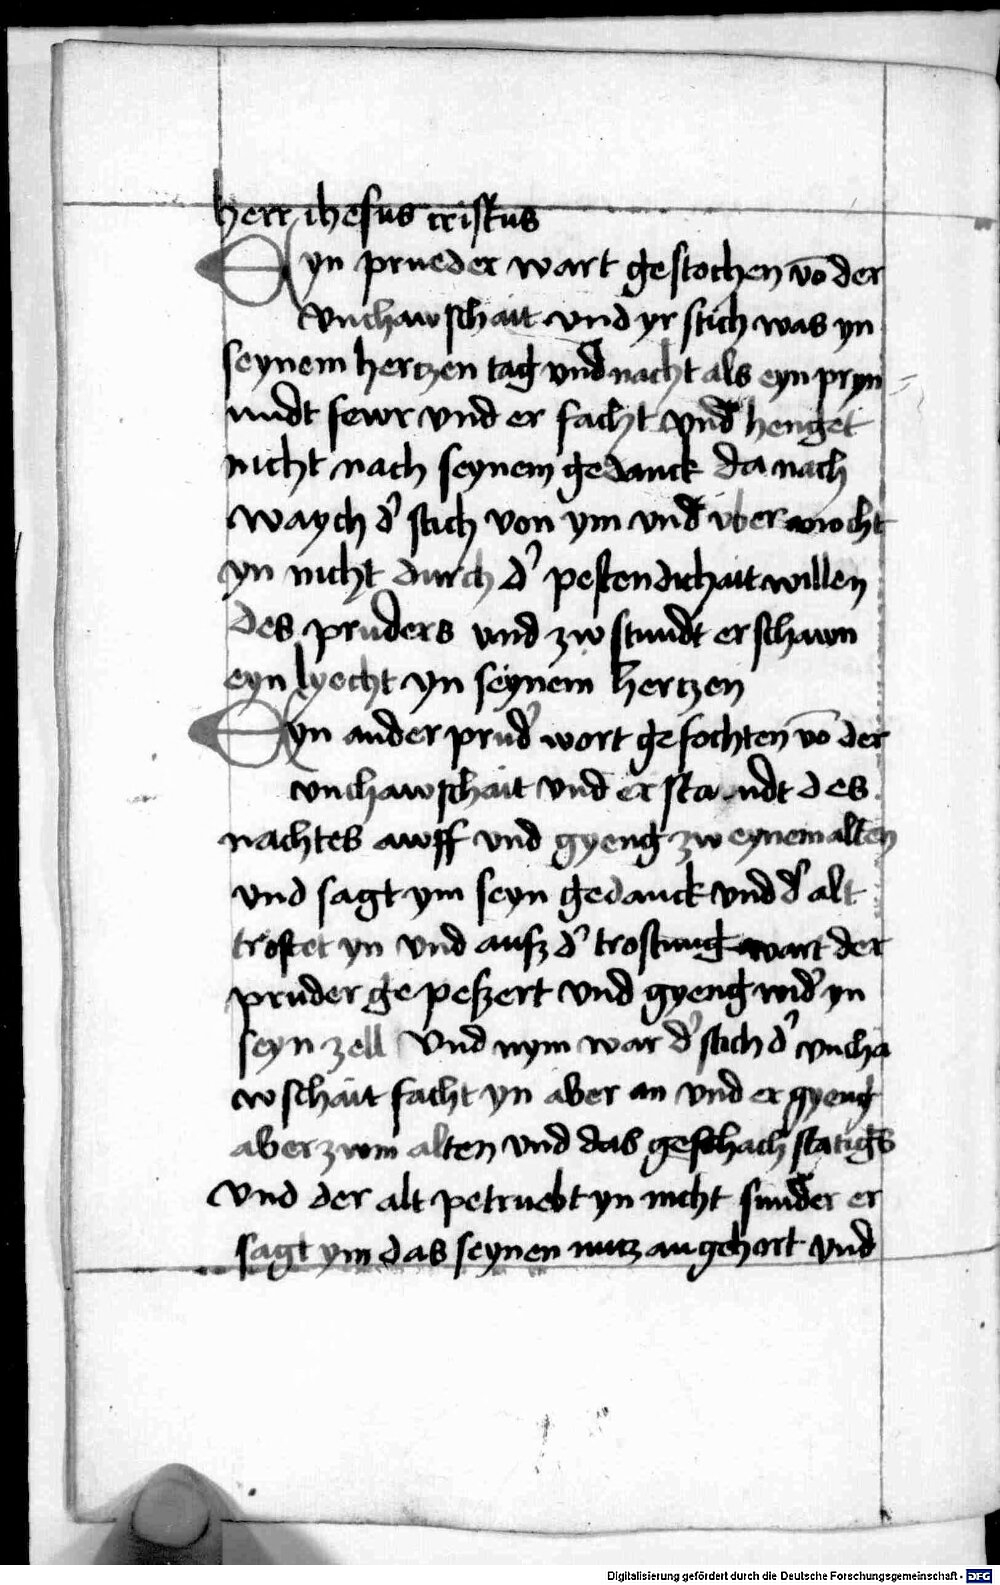 herr ihesus cristus
Eyn prueder wart gestochen vō der
vnchawschait vnd yr stich was yn
seynem hertzen tag vnd nacht als eyn pryn
nndt fewr vnd er facht vnd henget
nicht nach seynem gedanck da nach
waych d' stich von ym vnd vber mocht
yn nicht durch d' pestendichait willen
des pruders vnd zw stundt erschawn
eyn lyecht yn seynem hertzen
Eyn ander prud' wort gefochten vō der
vnchawschait vnd er standt des
nachtes awff vnd gyeng zw eynem alten
vnd sagt ym seyn gedanck vnd d' alt
trostet yn vnd aufz d' trostung wart der
pruder gepeßert vnd gyeng wid' yn
seyn zell Vnd nym war d' stich d' vncha
wschait facht yn aber an vnd er gyeng
aber zwm alten vnd das geschach statigs
Vnd der alt petruebt yn nicht sunder er
sagt ym das seynen nutz an gehort vnd
Digitalisierung gefördert durch die Deutsche Forschungsgemeinschaft - DFG